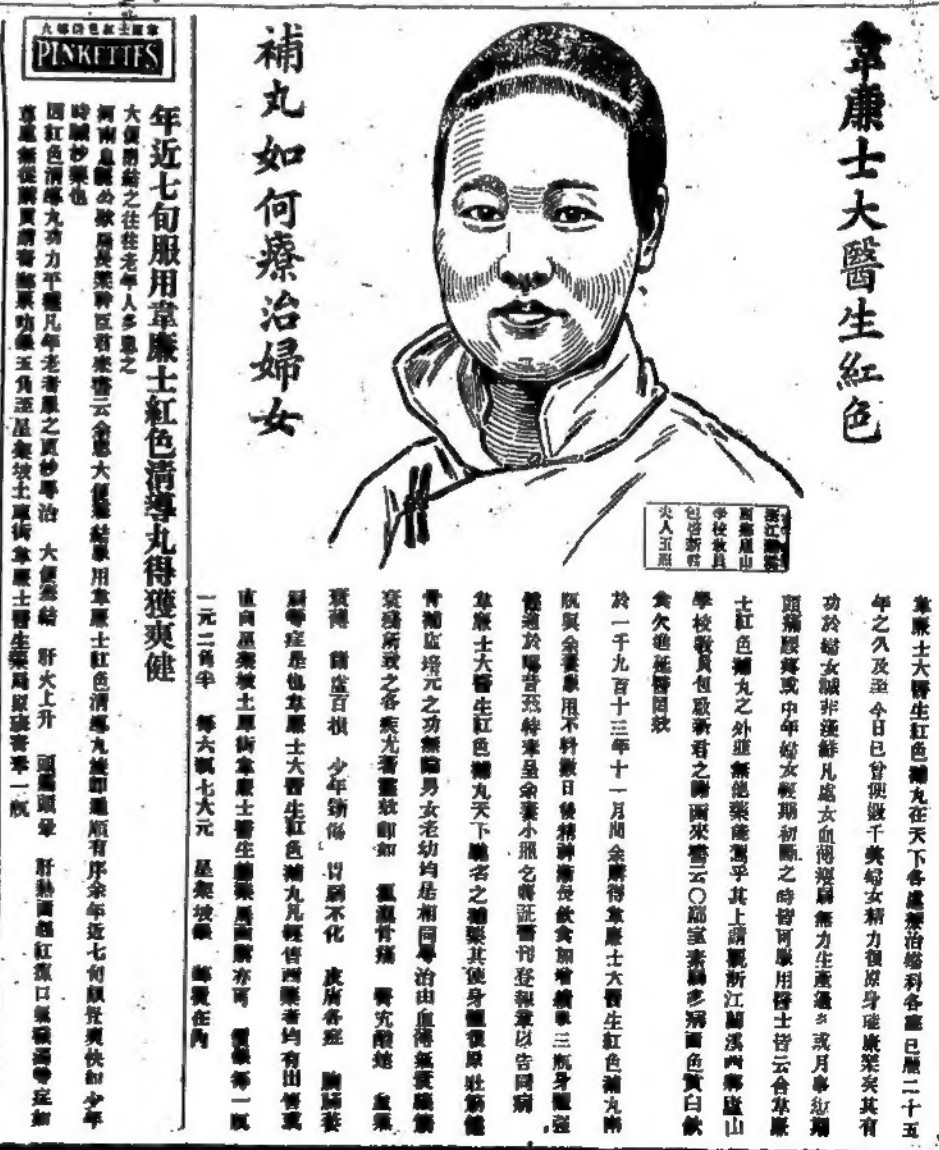 韋廉士大醫生紅色
補丸如何療治婦女
浙江蘭谿
西鄉廬山
學校教員
包啓新君
夫人玉照
韋廉士大醫生紅色補丸在天下各處療治婦科各症已歷二十五
年之久及至今日已曾使數千萬婦女精力復原身壯康樂矣其有
功於婦女誠非淺鮮凡處女血薄瘦弱無力生產過多或月事愆期
頭痛腰疼或中年婦女經期初斷之時皆可服用醫士皆云舍韋廉
士紅色補丸之外並無他藥能駕乎其上請觀浙江蘭溪西鄉廬山
學校教員包啟新君之謝函來書云〇鄙室素弱多病面色黃白飲
食欠進延醫罔效
於一千九百十三年十一月間余購得韋廉士大醫生紅色補丸兩
瓶與余妻服用不料數日後精神漸長飲食加增續服三瓶身體強
健過於曩昔茲特來呈余妻小照乞將証書刊登報章以告同病
韋廉士大醫生紅色補丸天下馳名之補藥其使身體復原壯筋健
骨補血培元之功無論男女老幼均是相同專治由血薄氣衰腦筋
衰殘所致之各疾尤著靈效即如 瘋濕骨痛 臀尻酸楚 血氣
衰薄 諸虛百損 少年斲傷 胃弱不化 皮膚各症 胸膈萎
弱等症是也韋廉士大醫生紅色補丸凡經售西藥者均有出售或
直向星架坡土庫街韋廉士醫生藥局函購亦可 價銀每一瓶
一元二角半 每六瓶七大元 星架坡銀 郵費在內
韋廉士紅色清導丸
PINKETTES
年近七旬服用韋廉士紅色清導丸得獲爽健
大便燥結之往往老年人多患之
河南息縣公款局長 來書云余患大便燥結服用韋廉士紅色清導丸後即通順有序余年近七旬頗覺爽快如少年
時誠妙藥也
因紅色清導丸功力平穩凡年老者服之更妙專治 大便燥結 肝火上升 頭痛頭暈 肝熱面 紅 口氣穢濁等症如
貴處無從購買請寄郵票 五角至星架坡土庫街韋廉士醫生藥局原班寄奉一瓶